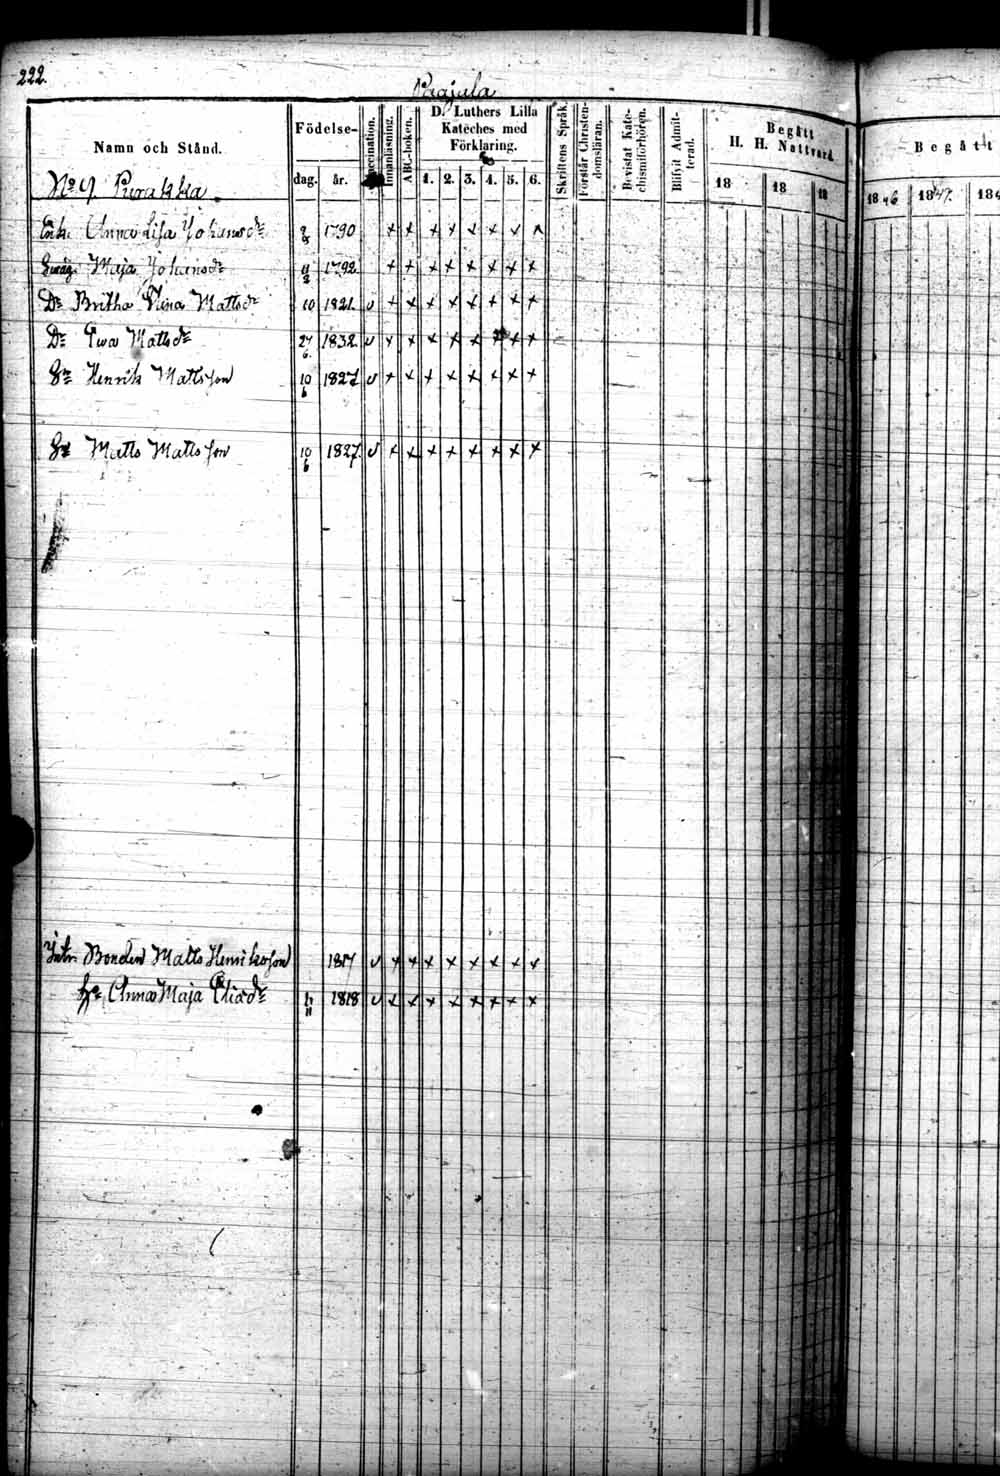 222.
Namn och Stånd.
Födelse-
dag. år.
Vaccination.
Innanläsning.
ABC-boken.
D. Luthers Lilla
Kateches med
Förklaring.
1. 2. 3. 4. 5. 6.
Skriftens Språk.
Förstår Christen-
domsläran.
Bevistat Kate-
chismiförhören.
Blifvit Admit-
terad.
Begått
H. H. Nattvard
18 18 18
Begått
1846 1847. 184
No 9
Anna Lisa Johansdr 1790 + + + + + + + +
Maja Johansdr 1792 + + + + + + + +
Dr Britha Mattsdr 10 1821. v + + + + + + + +
Dr Ewa Mattsdr 27/6. 1832. v + + + + + + + +
Sn Henrik Mattsson 10/6 1827 v + + + + + + + +
Sn Matts Mattsson 10/6 1827. v + + + + + + + +
Bonden Matts Henriksson 1817 v + + + + + + + +
Anna Maja Eliædr 1818 v + + + + + + + +